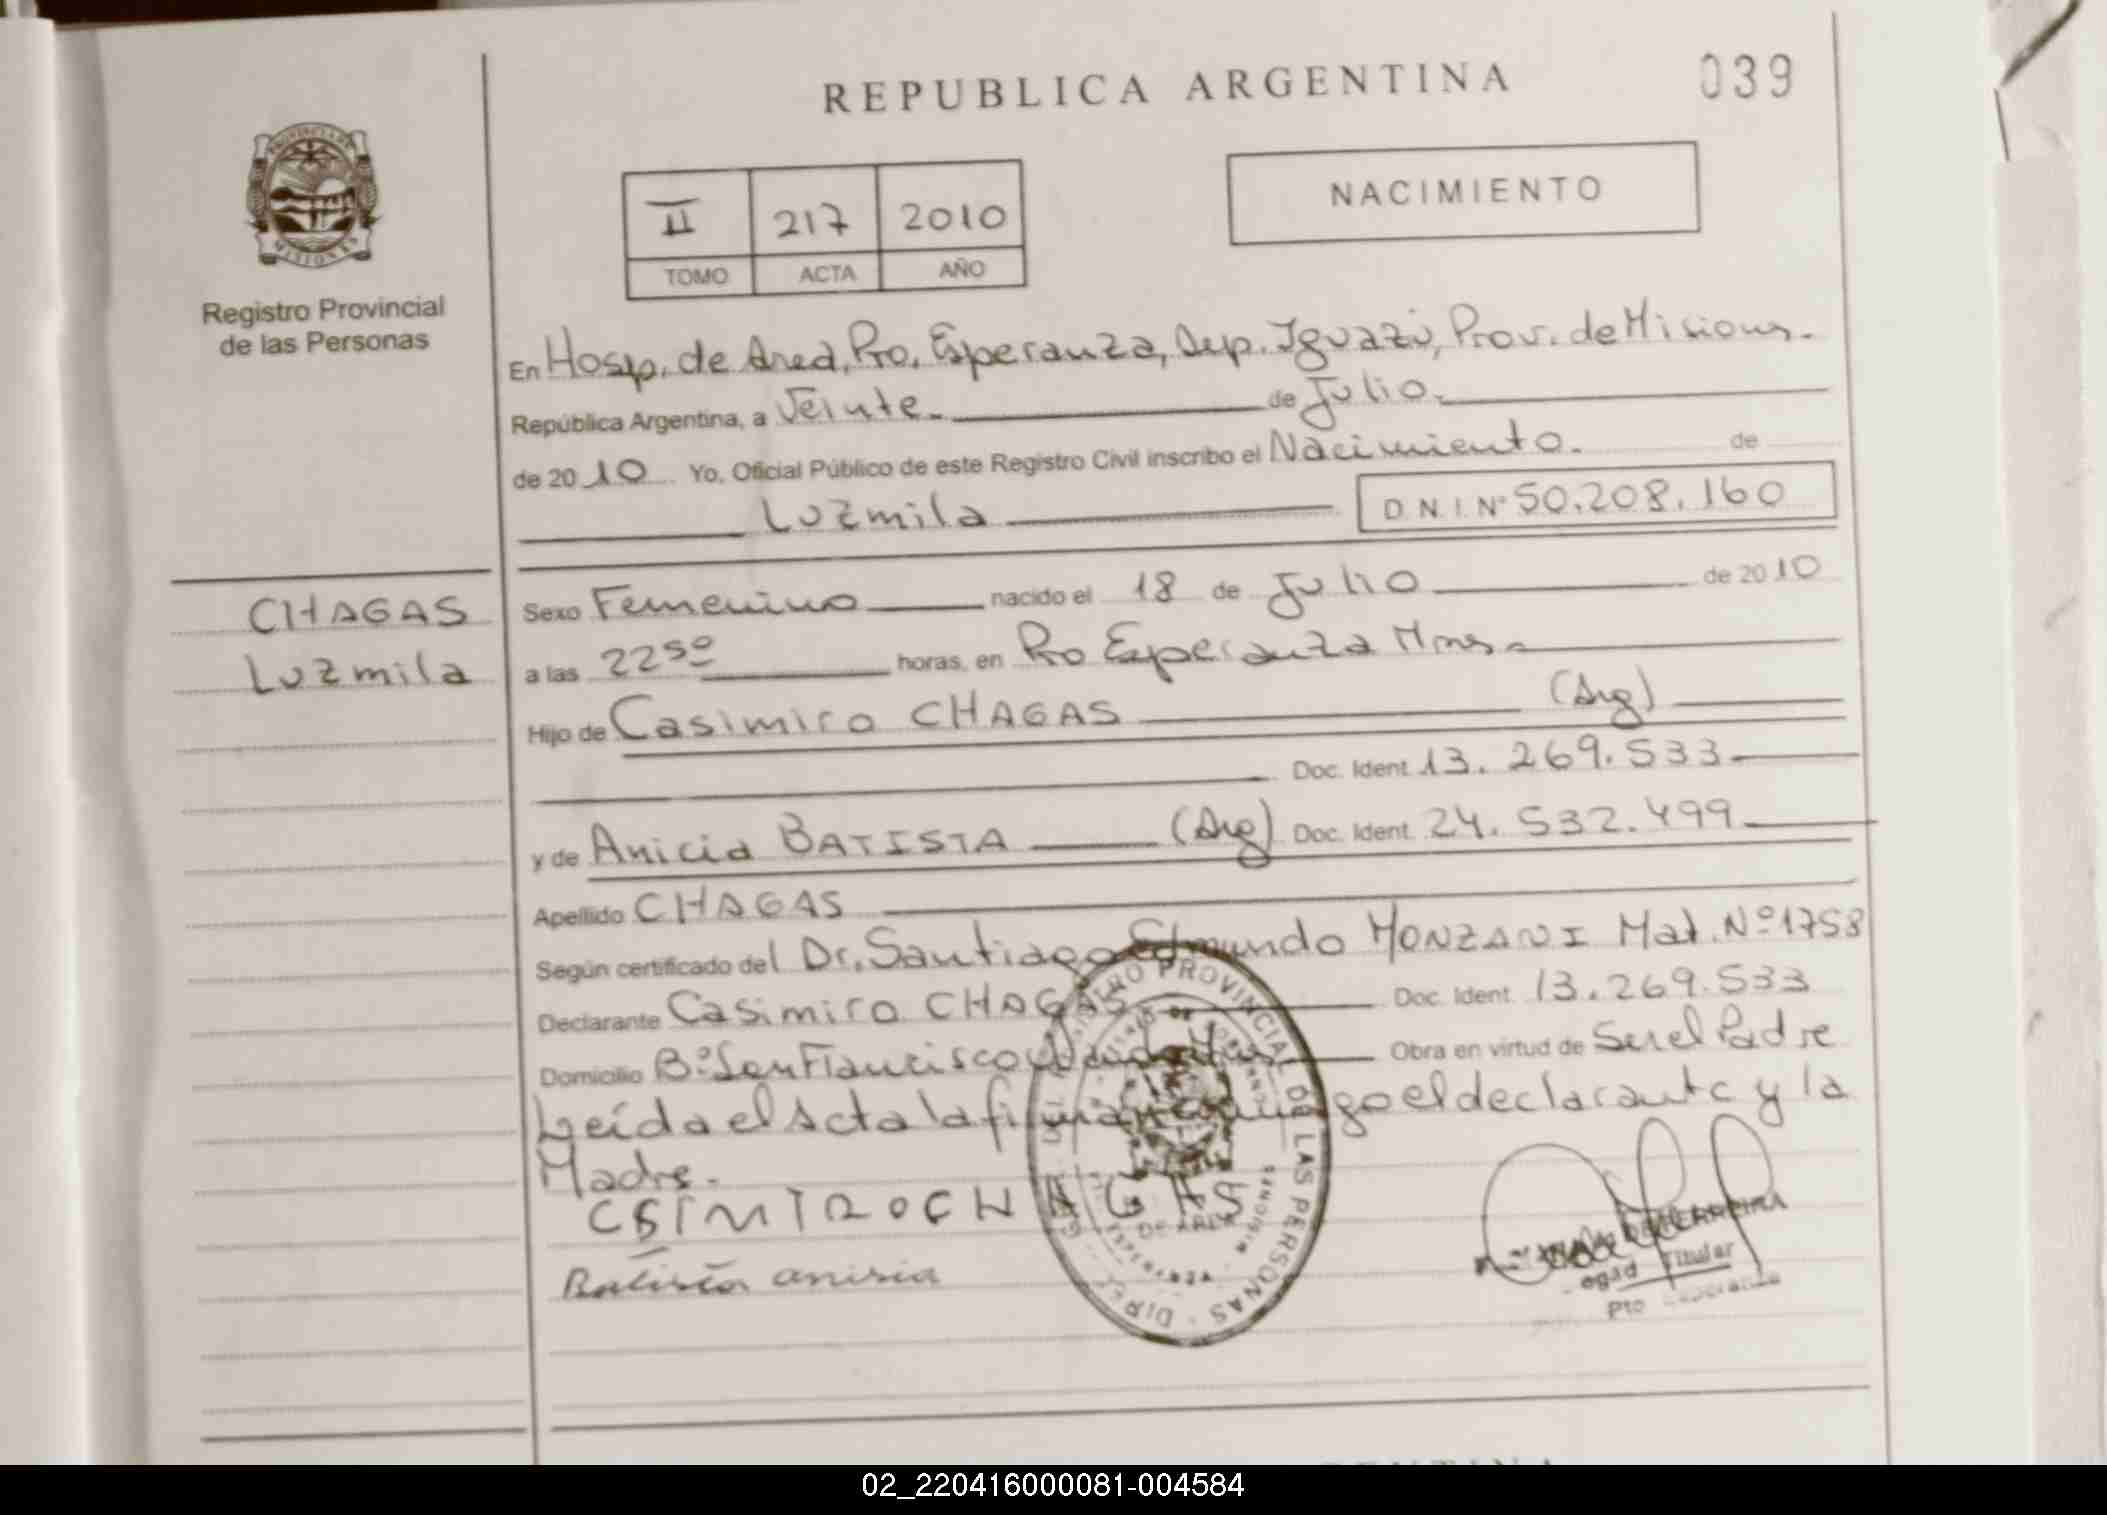 REPUBLICA ARGENTINA
039
PROVINCIA DE
MISIONES
Registro Provincial
de las Personas
II 217 2010
TOMO ACTA AÑO
NACIMIENTO
En Hosp. de Area, Pto. Esperanza, Dep. Iguazú, Prov. de Misiones.
República Argentina, a Veinte. de Julio.
de 2010 Yo, Oficial Público de este Registro Civil inscribo el Nacimiento. de
Luzmila D.N.I. Nº 50.208.160
CHAGAS
Luzmila
Sexo Femenino nacido el 18 de Julio de 2010
a las 22 50 horas, en Pto Esperanza Mnes.
Hijo de Casimiro CHAGAS (Arg)
Doc. Ident. 13.269.533
y de Anicia BATISTA (Arg) Doc. Ident. 24.532.499
Apellido CHAGAS
Según certificado del Dr. Santiago Edmundo MONZANI Mat. Nº 1758
Declarante Casimiro CHAGAS Doc. Ident. 13.269.533
Domicilio Bº San Francisco Obra en virtud de Ser el Padre
Leída el Acta la firman el declarante y la
Madre.
CSIMIROCHAGAS
Batista anisia
REGISTRO PROVINCIAL DE LAS PERSONAS
Titular
Pto Esperanza
02_220416000081-004584